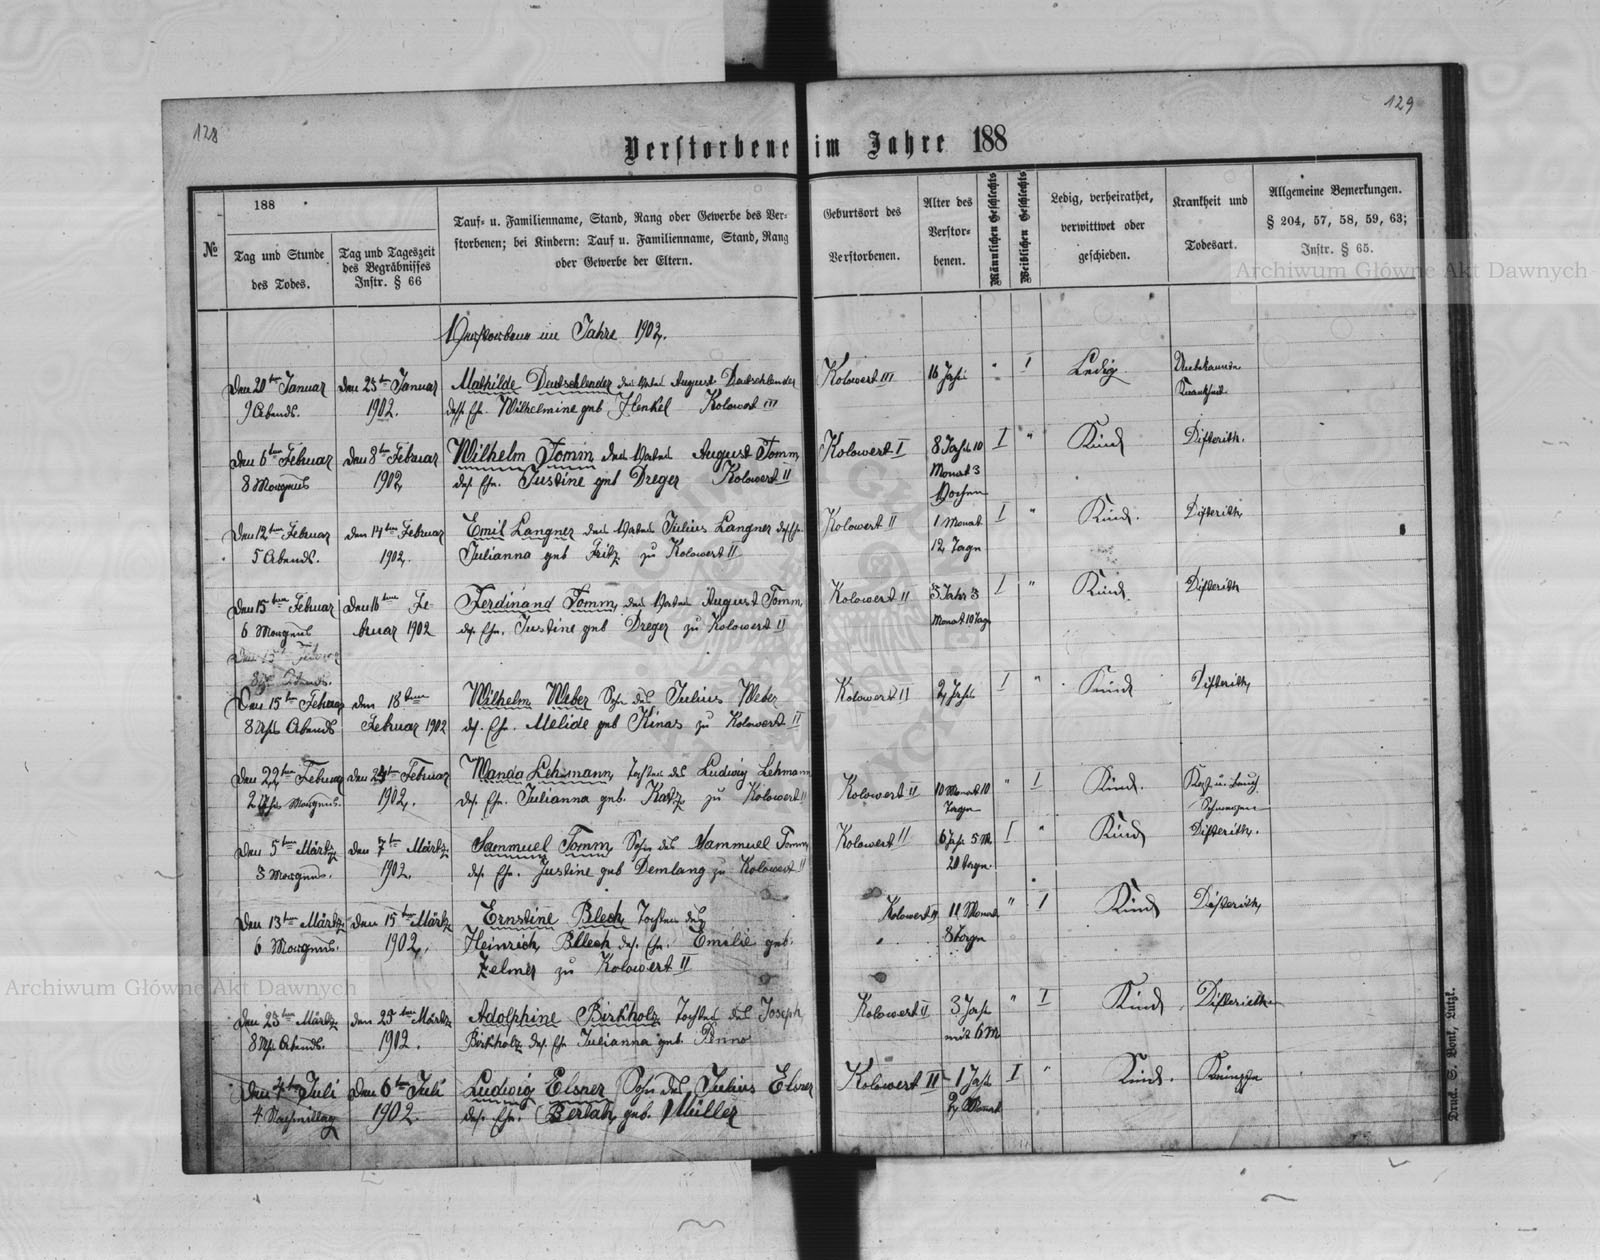 128
129
Verstorbene im Jahre 188
188
№
Tag und Stunde
des Todes.
Tag und Tageszeit
des Begräbnisses
Instr. § 66
Tauf- u. Familienname, Stand, Rang oder Gewerbe des Ver-
storbenen; bei Kindern: Tauf u. Familienname, Stand, Rang
oder Gewerbe der Eltern.
Geburtsort des
Verstorbenen.
Alter des
Verstor-
benen.
Männlichen Geschlechts
Weiblichen Geschlechts
Ledig, verheirathet,
verwittwet oder
geschieden.
Krankheit und
Todesart.
Allgemeine Bemerkungen.
§ 204, 57, 58, 59, 63;
Instr. § 65.
Archiwum Główne Akt Dawnych
Verstorbene im Jahre 1902.
Den 20ten Januar
9 Abends.
den 25ten Januar
1902.
Mathilde Deutschlender des Vaters August Deutschlender
dess. Ehe. Wilhelmine geb Henkel Kolowert III
Kolowert III
16 Jahr
" I
Ledig
Unbekannte
Krankheit
Den 6ten Februar
8 Morgens
den 8ten Februar
1902
Wilhelm Tomm des Vaters August Tomm
des. Ehe. Justine geb Dreger Kolowert II
Kolowert I
8 Jahr 10
Monat 3
Wochen
I "
Kind
Difterith.
Den 12ten Februar
5 Abends.
den 14ten Februar
1902.
Emil Langner des Vaters Julius Langner des Ehe.
Julianna geb Fritz zu Kolowert II
Kolowert II
1 Monat
12 Tage
I "
Kind.
Difterith
Den 15ten Februar
6 Morgens
den 16ten Fe-
bruar 1902
Ferdinand Tomm, des Vaters August Tomm,
des. Ehe. Justine geb Dreger zu Kolowert II
Kolowert II
3 Jahr 3
Monat 10 Tage
I "
Kind.
Difterith
Den 15ten Februar
8 Uhr Abends
den 18ten
Februar 1902
Wilhelm Weber Sohn des Julius Weber
des. Ehe. Melide geb Kinas zu Kolowert II
Kolowert II
2 Jahr
I "
Kind
Difterith,
Den 22ten Februar
2 Uhr Morgens.
den 24ten Februar
1902.
Wanda Lehmann, Tochter des Ludwig Lehmann
des. Ehe. Julianna geb. Katz zu Kolowert II
Kolowert II
10 Monat 10
Tage
" I
Kind.
Den 5ten Märtz
3 Morgens.
den 7ten Märtz.
1902.
Sammuel Tomm, Sohn des Sammuel Tomm,
des. Ehe. Justine geb Demlang zu Kolowert II
Kolowert II
6 Jahr 5 M.
20 Tage.
I "
Kind
Difterith.
Den 13ten Märtz.
6 Morgens.
den 15ten Märtz
1902.
Ernstine Blech Tochter des
Heinrich Blech des. Ehe. Emilie geb.
Zelmer zu Kolowert II
Kolowert II
11 Monat
8 Tage
" I
Kind
Difterith,
Den 23ten Märtz
8 Uhr Abends.
den 25ten Märtz
1902.
Adolphine Birkholz Tochter des Joseph
Birkholz des. Ehe Julianna geb. Penno
Kolowert II
3 Jahr
mit 6 M
" I
Kind
Difterieth
Den 4ten Juli
4 Nachmittag
Den 6ten Juli
1902
Ludwig Elsner Sohn des Julius Elsner
des. Ehe. Bertah geb. Müller
Kolowert II
1 Jahr
2 Monat
I "
Kind.
Krämpfe
Archiwum Główne Akt Dawnych
Druck. S. Bonk, Lutzk.